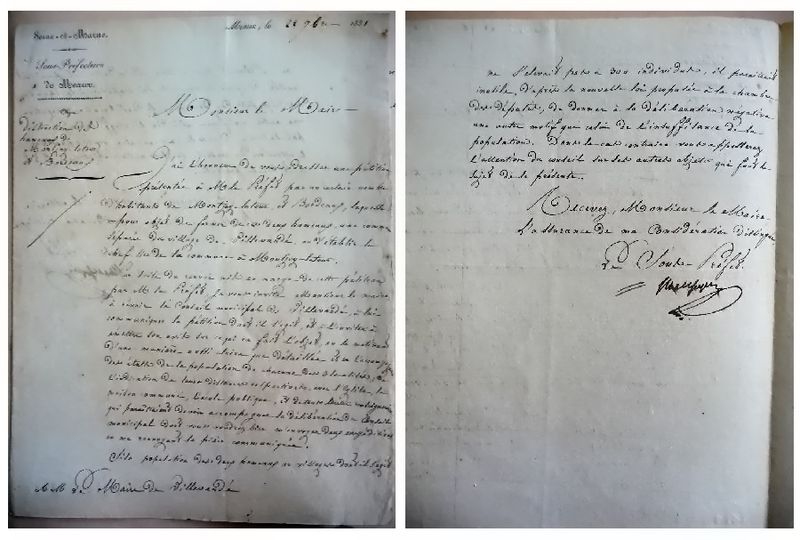 Seine-et-Marne.
Sous-Préfecture
de Meaux.
Distraction des
hameaux de
Montigy leteux
et Bordeaux
Meaux, le 22 9bre 1831
Monsieur le Maire
J'ai l'honneur de vous adresser une pétition
présentée à M. le Préfet par un certain nombre
d'habitants de Montigy-leteux, et Bordeaux, laquelle
a pour objet de former de ces deux hameaux une commune
séparée du village de Villevaudé, et d'établir le
chef lieu de la commune à Montigy-leteux.
En suite du renvoi mis en marge de cette pétition
par M. le Préfet je vous invite Monsieur le maire
à réunir le Conseil municipal de Villevaudé, à lui
communiquer la pétition dont il s'agit, et à l'inviter à
émettre son avis sur ce qui en fait l'objet, en le motivant
d'une manière aussi claire que détaillée et en l'accompagnant
des états de la population de chacune des localités, de
l'indication de leurs distances respectives, avec l'église, la
maison commune, l'école publique, et de tous autres renseignements
qui paraîtraient devoir accompagner la délibération du Conseil
municipal dont vous voudrez bien m'envoyer deux expéditions
en me renvoyant la pièce communiquée.
Si la population des deux hameaux ou villages dont il s'agit
A M. le Maire de Villevaudé
ne s'élevait pas à 300 individus, il paraîtrait
inutile, d'après la nouvelle loi proposée à la chambre
des députés, de donner à la délibération négative
une autre motif que celui de l'insuffisance de la
population. Dans le cas contraire vous appellerez
l'attention du conseil sur les autres objets qui font le
sujet de la présente.
Recevez, Monsieur le Maire
l'assurance de ma Considération distinguée
Le Sous-Préfet.